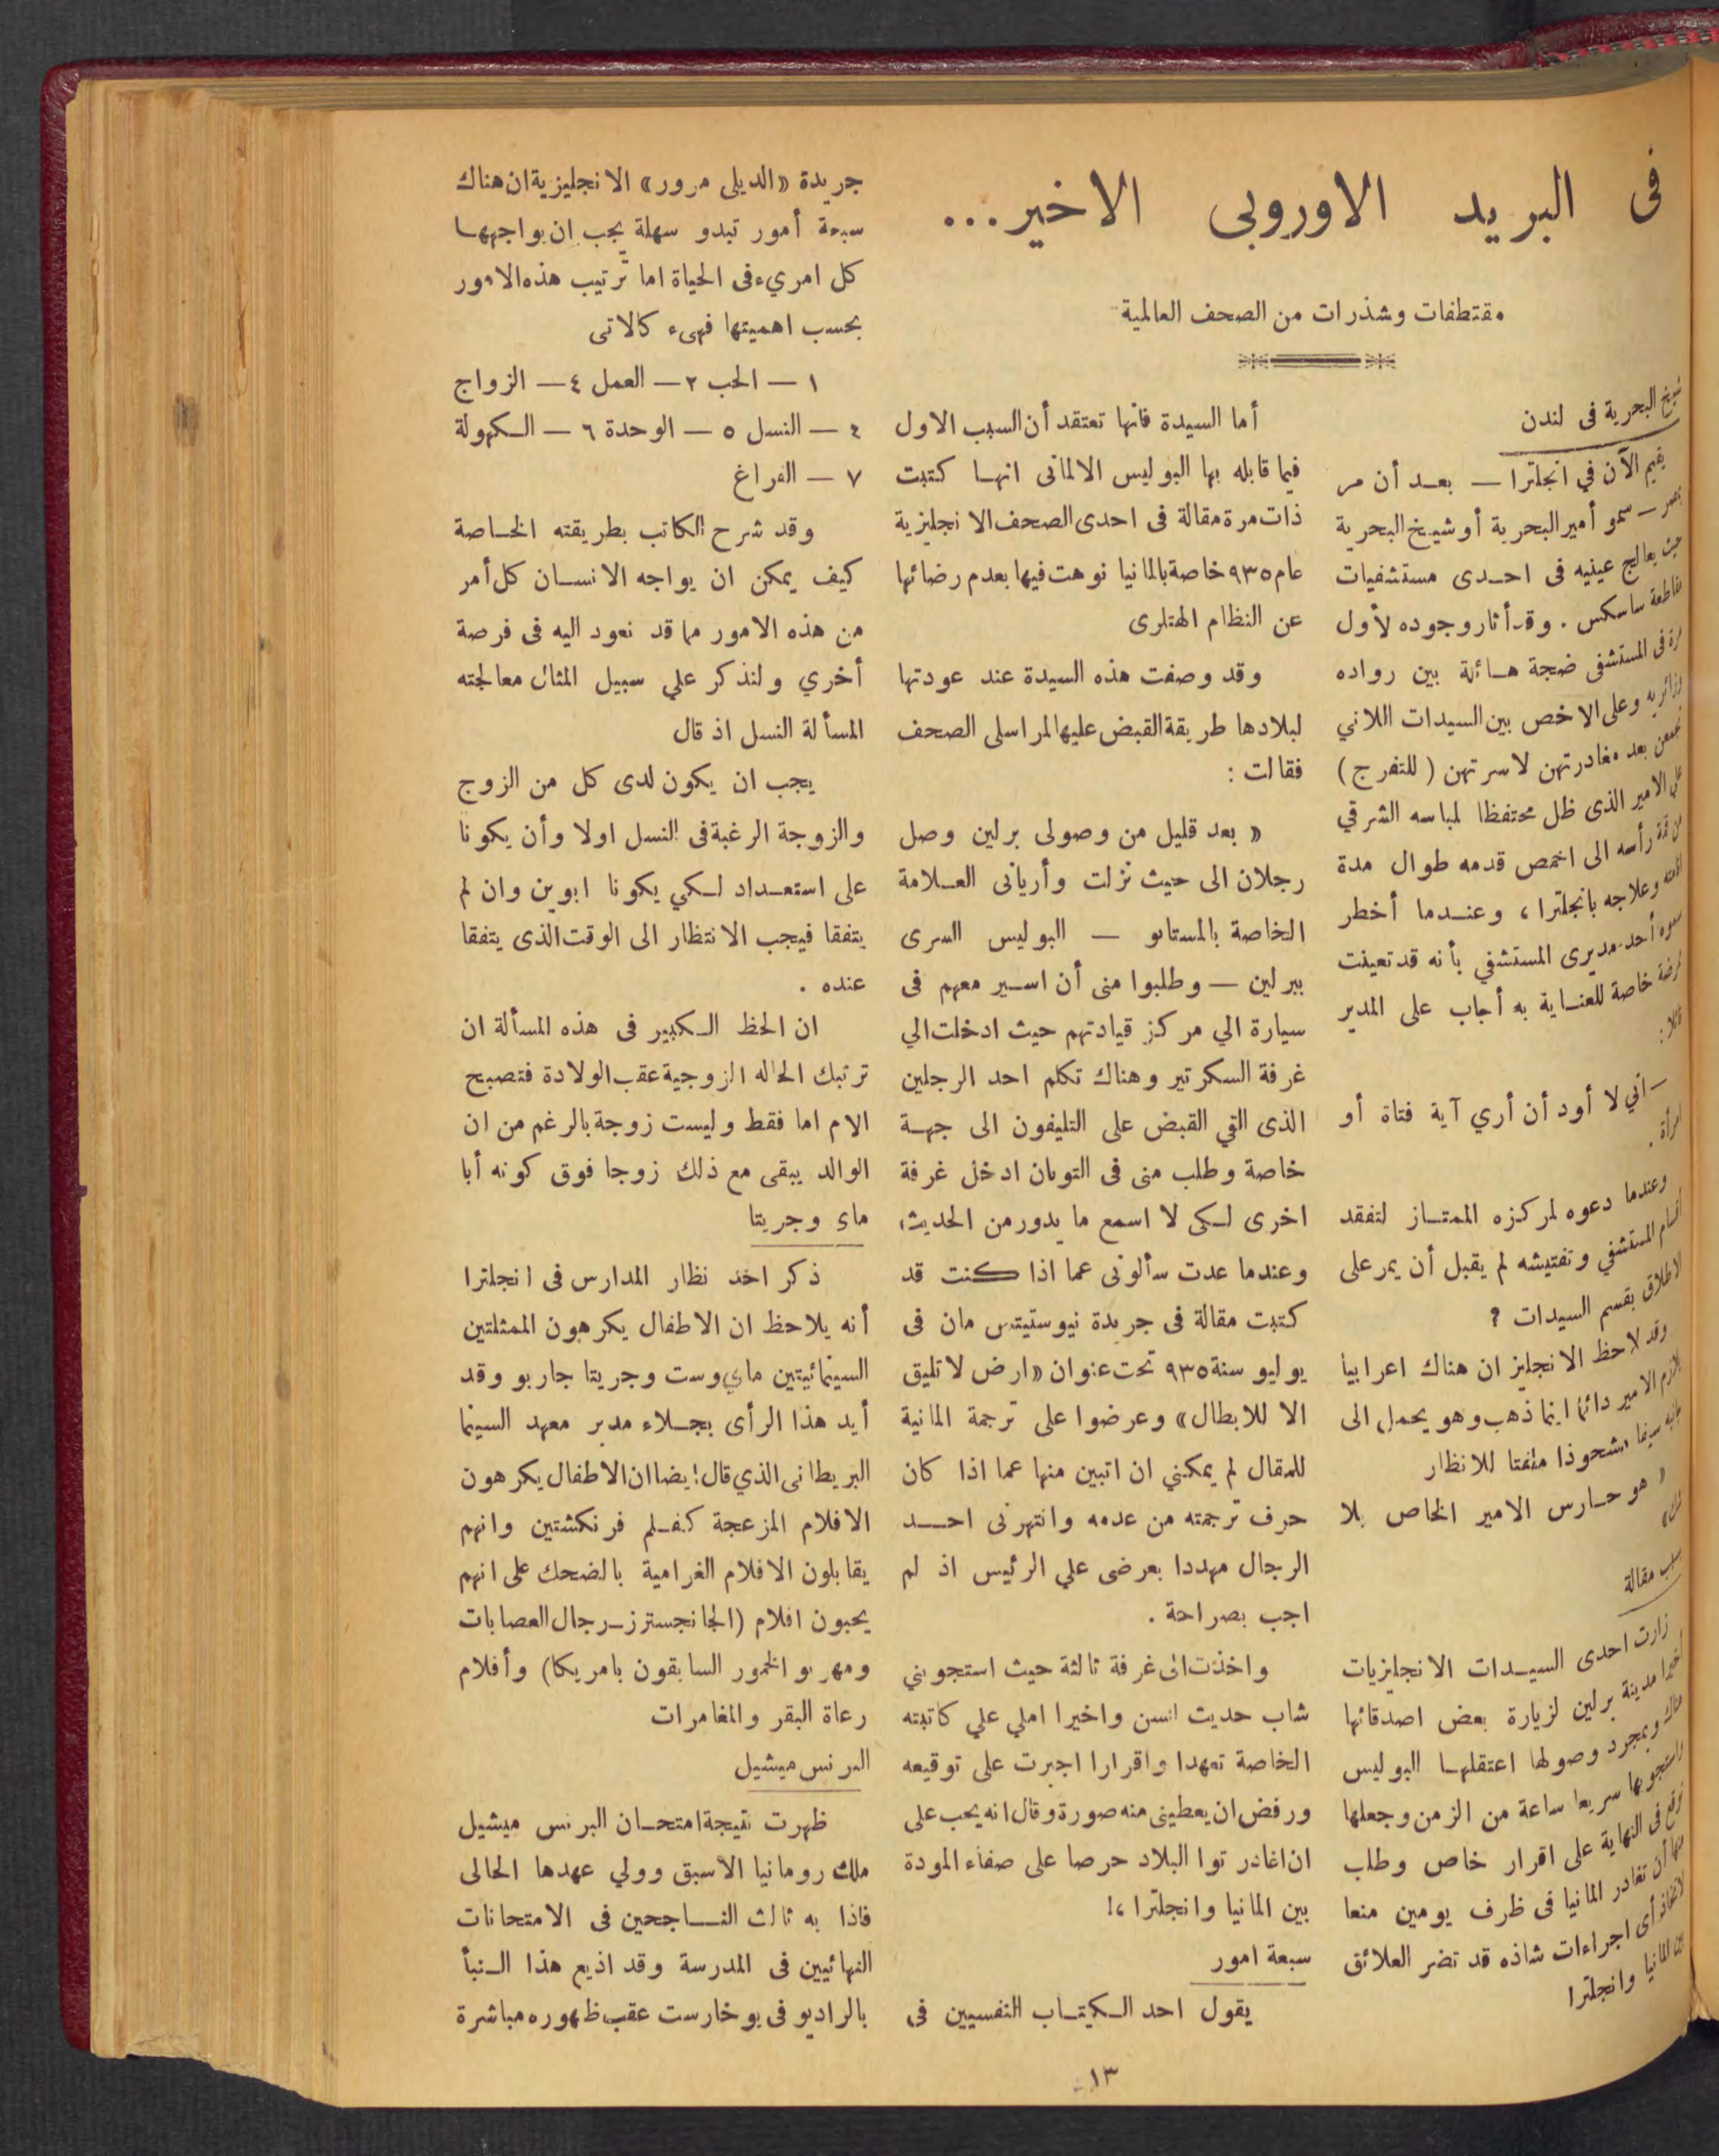 فى البريد الاوروبى الاخير...
مقتطفات وشذرات من الصحف العالمية
شيخ البحرية فى لندن
يقيم الآن في انجلترا — بعد أن مر
بمصر — سمو أمير البحرية أو شيخ البحرية
حيث يعالج عينيه فى احدى مستشفيات
مقاطعة ساسكس . وقد أثار وجوده لأول
مرة فى المستشفى ضجة هائلة بين رواده
وزائريه وعلى الاخص بين السيدات اللاتي
تجمعن بعد مغادرتهن لاسرتهن ( للتفرج )
على الامير الذى ظل محتفظا لمباسه الشرقي
من قمة رأسه الى اخمص قدمه طوال مدة
وعلاجه بانجلترا ، وعندما أخطر
سموه أحد مديرى المستشفي بأنه قد تعينت
ممرضة خاصة للعناية به أجاب على المدير
قائلا :
— اني لا أود أن أري آية فتاة أو
امرأة .
وعندما دعوه لمركزه الممتاز لتفقد
اقسام المستشفي وتفتيشه لم يقبل أن يمر على
الاطلاق بقسم السيدات ?
وقد لاحظ الانجليز ان هناك اعرابيا
يلازم الامير دائما اينما ذهب وهو يحمل الى
جانبه سيفا مشحوذا ملفتا للانظار
« هو حارس الامير الخاص بلا
شك »
سبب مقالة
زارت احدى السيدات الانجليزيات
اخيرا مدينة برلين لزيارة بعض اصدقائها
هناك وبمجرد وصولها اعتقلها البوليس
واستجوبها سريعا ساعة من الزمن وجعلها
توقع فى النهاية على اقرار خاص وطلب
منها أن تغادر المانيا فى ظرف يومين منعا
لاتخاذ أى اجراءات شاذه قد تضر العلائق
بين المانيا وانجلترا
أما السيدة فانها تعتقد أن السبب الاول
فيما قابله بها البوليس الالمانى انها كتبت
ذات مرة مقالة فى احدى الصحف الانجليزية
عام ٩٣٥ خاصة بالمانيا نوهت فيها بعدم رضائها
عن النظام الهتلرى
وقد وصفت هذه السيدة عند عودتها
لبلادها طريقة القبض عليها لمراسلى الصحف
فقالت :
« بعد قليل من وصولى برلين وصل
رجلان الى حيث نزلت وأريانى العلامة
الخاصة بالمستابو — البوليس السرى
ببرلين — وطلبوا منى أن اسير معهم فى
سيارة الي مركز قيادتهم حيث ادخلت الي
غرفة السكرتير وهناك تكلم احد الرجلين
الذى التي القبض على التليفون الى جهة
خاصة وطلب منى فى التو بان ادخل غرفة
اخرى لكى لا اسمع ما يدور من الحديث،
وعندما عدت سألونى عما اذا كنت قد
كتبت مقالة فى جريدة نيوستيتس مان فى
يوليو سنة ٩٣٥ تحت عنوان «ارض لا تليق
الا للابطال» وعرضوا على ترجمة المانية
للمقال لم يمكني ان اتبين منها عما اذا كان
حرف ترجمته من عدمه وانتهرنى احد
الرجال مهددا بعرضى علي الرئيس اذ لم
اجب بصراحة .
واخذت الى غرفة ثالثة حيث استجوبني
شاب حديث السن واخيرا املي علي كاتبته
الخاصة تعهدا واقرارا اجبرت على توقيعه
ورفض ان يعطينى منه صورة وقال انه يجب على
ان اغادر توا البلاد حرصا على صفاء المودة
بين المانيا وانجلترا ،!
سبعة امور
يقول احد الكتاب النفسيين فى
جريدة «الديلى مرور» الانجليزية ان هناك
سبعة أمور تبدو سهلة يجب ان يواجهها
كل امريء فى الحياة اما ترتيب هذه الامور
بحسب اهميتها فهىء كالاتى
١ — الحب ٢ — العمل ٤ — الزواج
٤ — النسل ٥ — الوحدة ٦ — الكهولة
٧ — الفراغ
وقد شرح الكاتب بطريقته الخاصة
كيف يمكن ان يواجه الانسان كل أمر
من هذه الامور مما قد نعود اليه فى فرصة
أخري ولنذكر علي سبيل المثال معالجته
المسألة النسل اذ قال
يجب ان يكون لدى كل من الزوج
والزوجة الرغبة فى النسل اولا وأن يكونا
على استعداد لكي يكونا ابوين وان لم
يتفقا فيجب الانتظار الى الوقت الذى يتفقا
عنده .
ان الحظ الكبير فى هذه المسألة ان
ترتبك الحاله الزوجية عقب الولادة فتصبح
الام اما فقط وليست زوجة بالرغم من ان
الوالد يبقى مع ذلك زوجا فوق كونه أبا
ماى وجريتا
ذكر احد نظار المدارس فى انجلترا
أنه يلاحظ ان الاطفال يكرهون الممثلتين
السينمائيتين ماي وست وجريتا جاربو وقد
أيد هذا الرأى بجلاء مدير معهد السينما
البريطانى الذي قال ايضا ان الاطفال يكرهون
الافلام المزعجة كفلم فرنكشتين وانهم
يقابلون الافلام الغرامية بالضحك على انهم
يحبون افلام (الجانجسترز — رجال العصابات
ومهربو الخمور السابقون بامريكا) وأفلام
رعاة البقر والمغامرات
البرنس ميشيل
ظهرت نتيجة امتحان البرنس ميشيل
ملك رومانيا الأسبق وولي عهدها الحالى
فاذا به ثالث الناجحين فى الامتحانات
النهائيين فى المدرسة وقد اذيع هذا النبأ
بالراديو فى بوخارست عقب ظهوره مباشرة
١٣